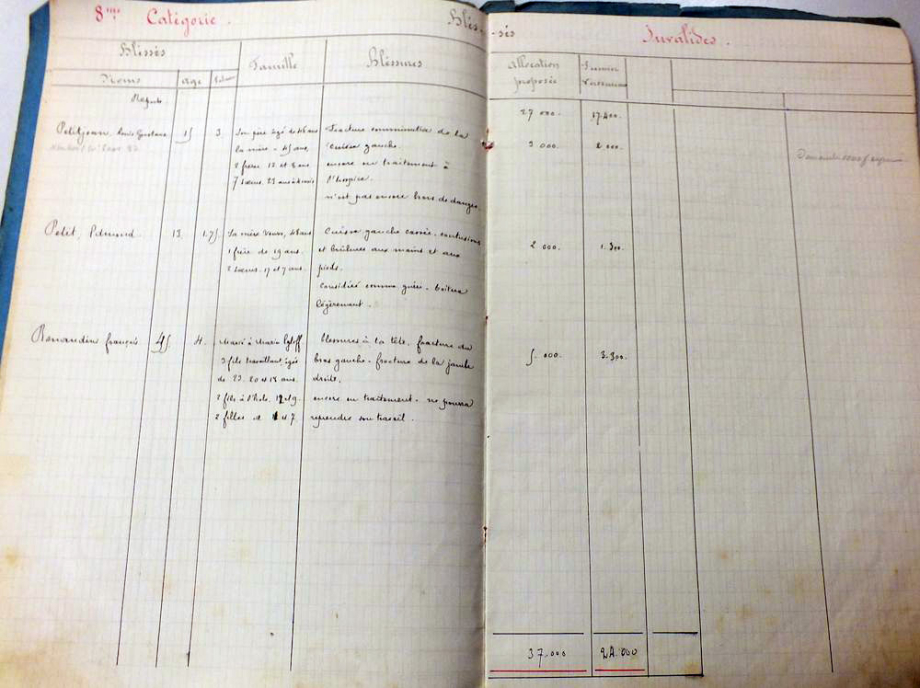 8me Catégorie. Blessés Invalides.
Blessés
Famille
Blessures
Allocation proposée
Premier Versement
Noms
Age
Report.
27 000. 17.400.
Petitjean, Louis Gustave 15 3. Son père âgé de 48 ans Fracture comminutive de la 3 000. 2 000.
la mère - 45 ans, cuisse gauche.
2 frères 12 et 8 ans encore en traitement à
7 sœurs. 23 ans à l'hospice.
n'est pas encore hors de danger.
Petit, Edmond. 13 1.75 Sa mère Veuve, 48 ans Cuisse gauche cassée. contusions 2 000. 1.300.
1 frère de 19 ans. et brûlures aux mains et aux
2 sœurs. 17 et 7 ans. pieds.
Considéré comme guéri. boitera
légèrement.
françois 45 4. Marié à Maria blessures à la tête, fracture du 5.000. 3.300.
3 fils travaillant, âgés bras gauche. fracture de la jambe
de 23. 20 et 15 ans. droite.
2 fils à l'école. 12 et 9. encore en traitement. ne pourra
2 filles de et 7. reprendre son travail.
37.000 24.000